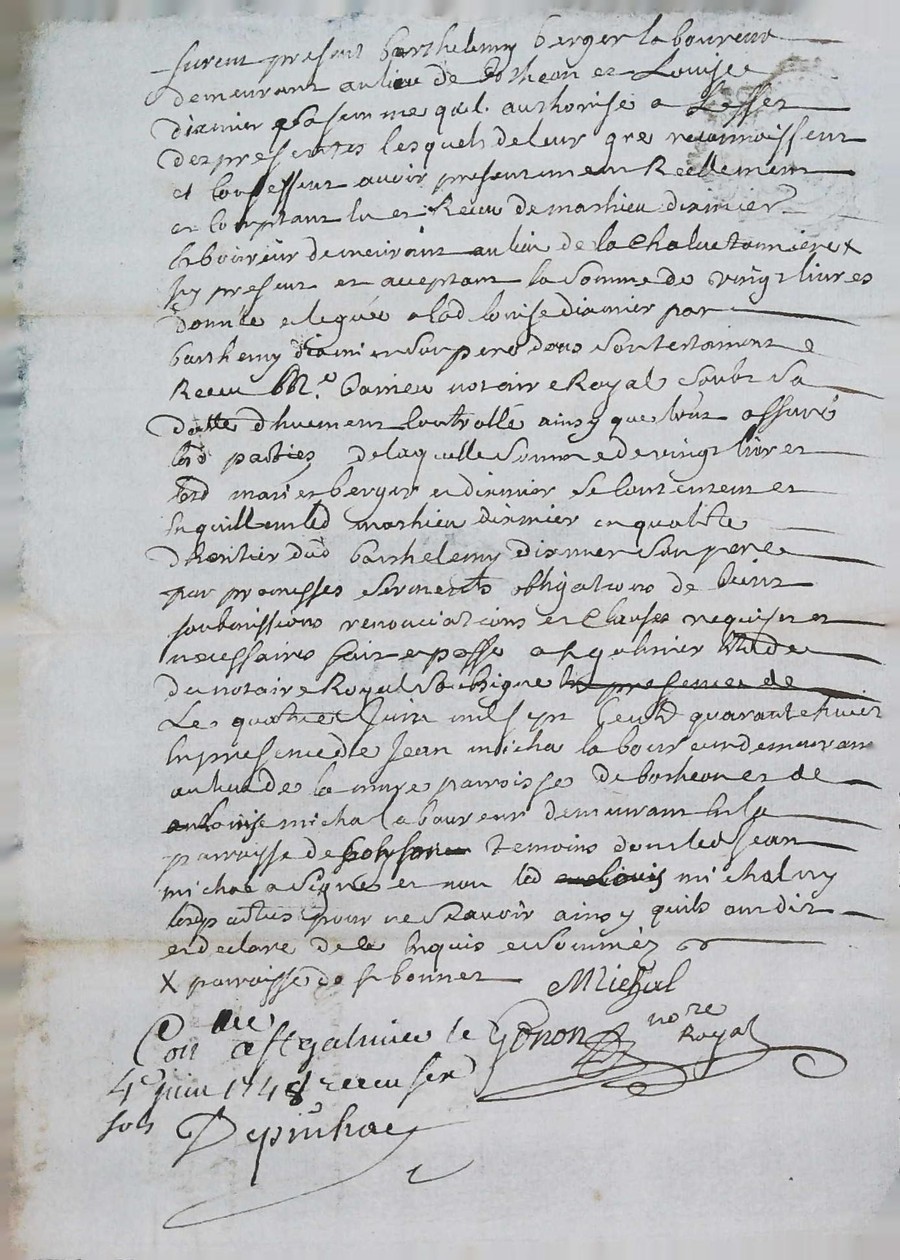 furent presents barthelemy berger laboureur
demeurant au lieu de et Louise
dixmier sa femme quil authorise a Leffet
des presentes lesquels de leur gre reconnoissent
et confessent avoir presentement Reellement
et comptant eu et Receu de mathieu dixmier
laboureur demeurant au lieu de la Chalue x
icy present et acceptant la somme de vingt livres
donnée et leguée a lad louise dixmier par
barthemy dixmier son pere dans son testament
Receu Me notaire Royal soubz sa
datte dhuement controllé ainsy que lont assuré
led parties de laquelle somme de vingt livres
led mariés berger et dixmier se contentent et
en quittent led mathieu dixmier en qualite
dheritier dud barthelemy dixmier son pere
par promesses serments obligations de biens
soubmissions renonciations et Clauses requises et
necessaires fait et passé a st galmier etude
du notaire Royal soubsigne en presence de
Le quatre Juin mil sept Cent quarante huit
En presence de Jean micha laboureur demeurant
au lieu de la paroisse de et de
louis michal laboureur demeurant
paroisse de temoins dont led Jean
michal a signé et non led louis michal ny
lesd parties pour ne scavoir ainsy quils ont dit
et declaré de ce Enquis et sommés
x paroisse de st bonnet Michal
Con a St galmier le Gonon nore Royal
4e juin 1748 receu
sols Depinhac